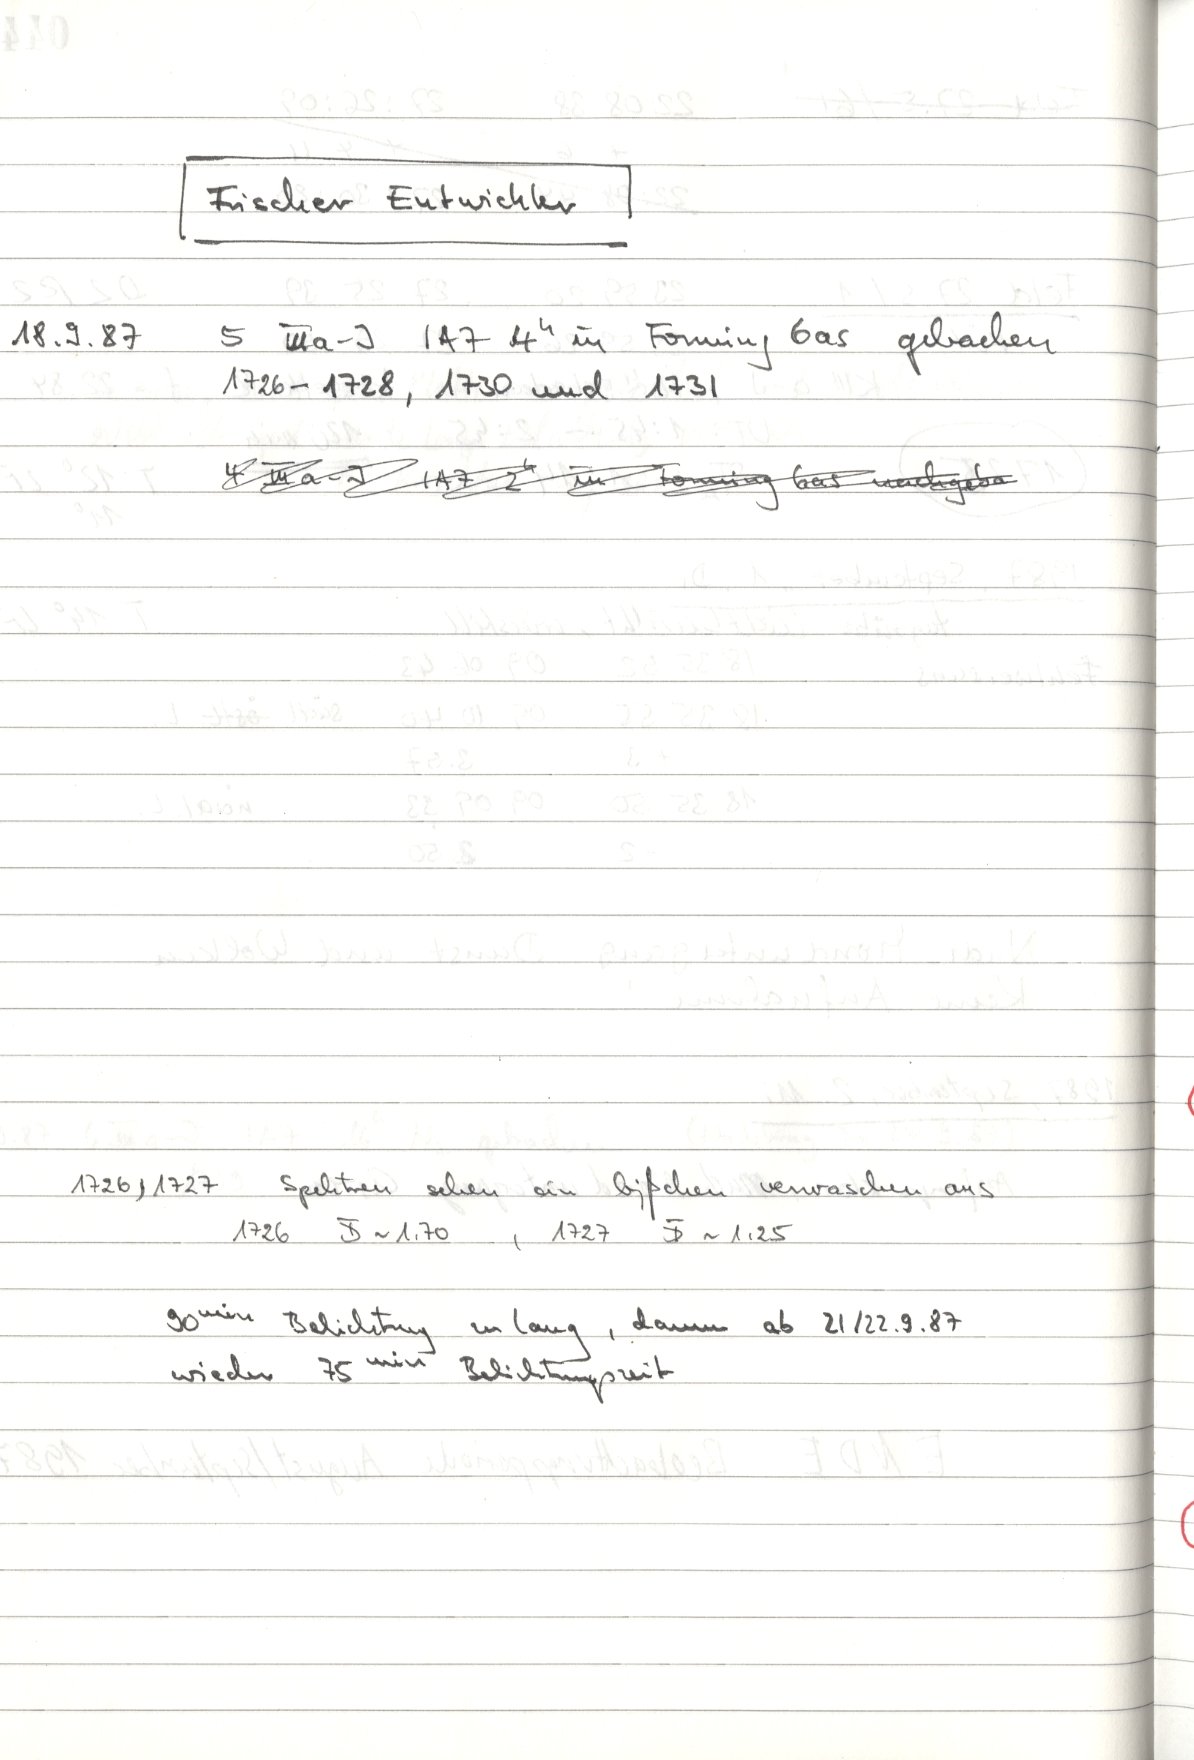 Frischer Entwickler
18.9.87 5 IIIa-J 1A7 4ʰ in Forming Gas gebacken
1726-1728, 1730 und 1731
4 IIIa-J 1A7 2ʰ in Forming Gas nachgeba
1726, 1727 Spektren sehen ein bißchen verwaschen aus
1726 D̅ ~ 1.70 , 1727 D̅ ~ 1.25
90 min Belichtung zu lang, darum ab 21/22.9.87
wieder 75 min Belichtungszeit